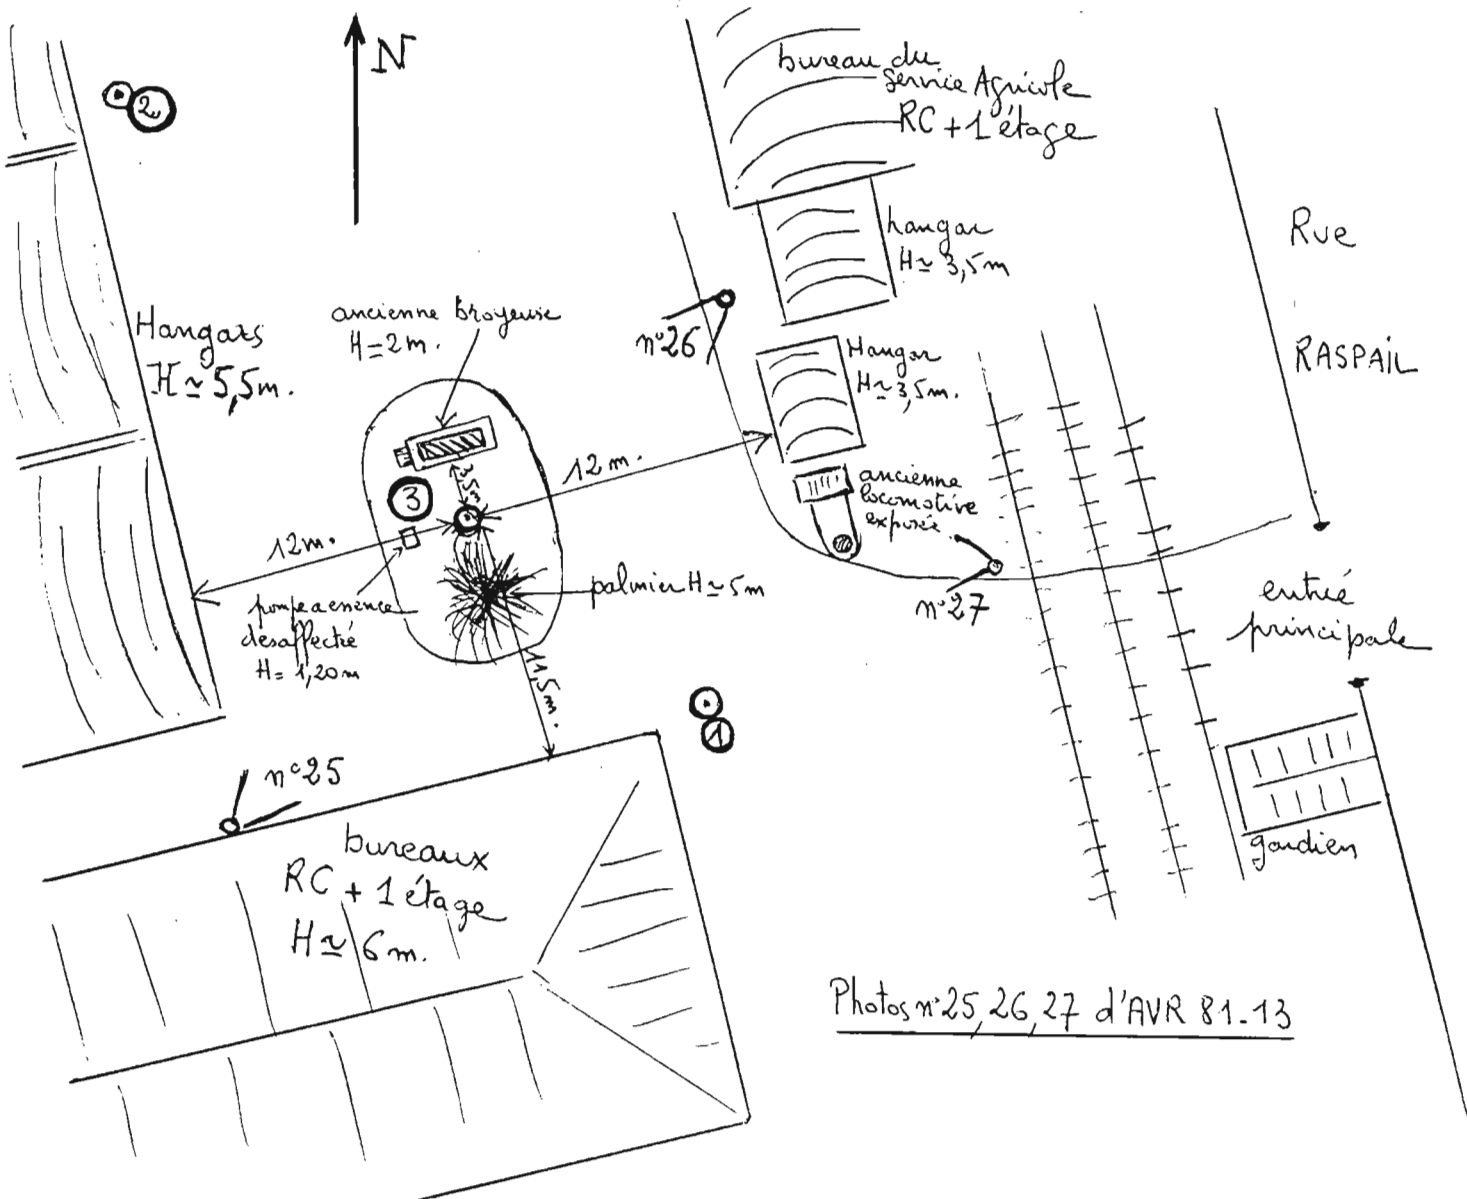 N
2
bureau du
service Agricole
RC + 1 étage
hangar
H ≃ 3,5m
Rue
RASPAIL
Hangars
H ≃ 5,5m.
ancienne broyeuse
H = 2m.
n°26
Hangar
H ≃ 3,5m.
12 m.
3,5m
3
ancienne
locomotive
exposée
12m.
pompe a essence
désaffecté
H = 1,20m
palmier H ≃ 5m
n°27
entrée
principale
11,5m.
1
n°25
bureaux
RC + 1 étage
H ≃ 6m.
gardien
Photos n°25, 26, 27 d'AVR 81-13